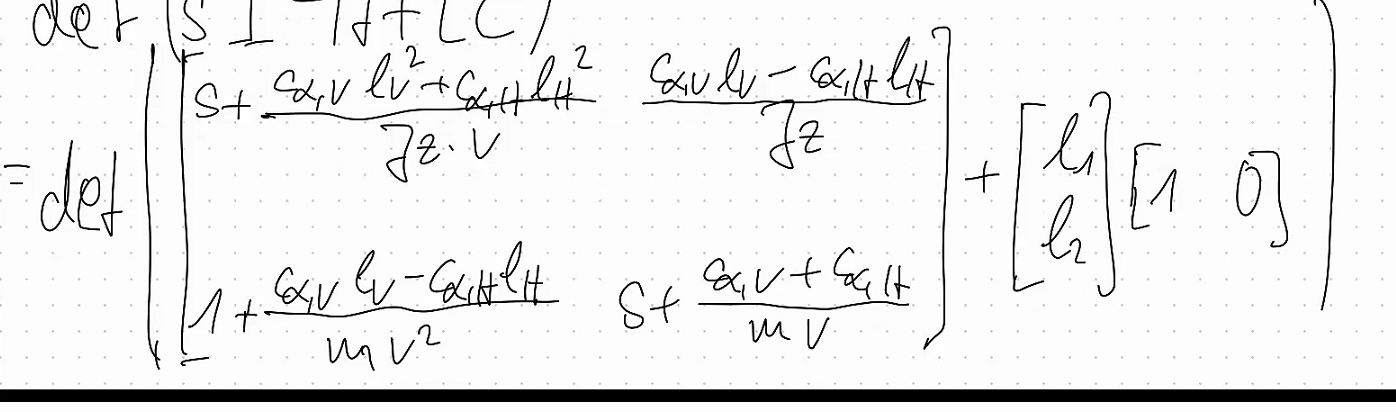 det (sI - A + LC)
= det ( [ s + (c_{α,V} l_V² + c_{α,H} l_H²) / (J_z · v)    (c_{α,V} l_V - c_{α,H} l_H) / J_z
1 + (c_{α,V} l_V - c_{α,H} l_H) / (m v²)    s + (c_{α,V} + c_{α,H}) / (m v) ] + [ l_1 l_2 ] [ 1 0 ] )